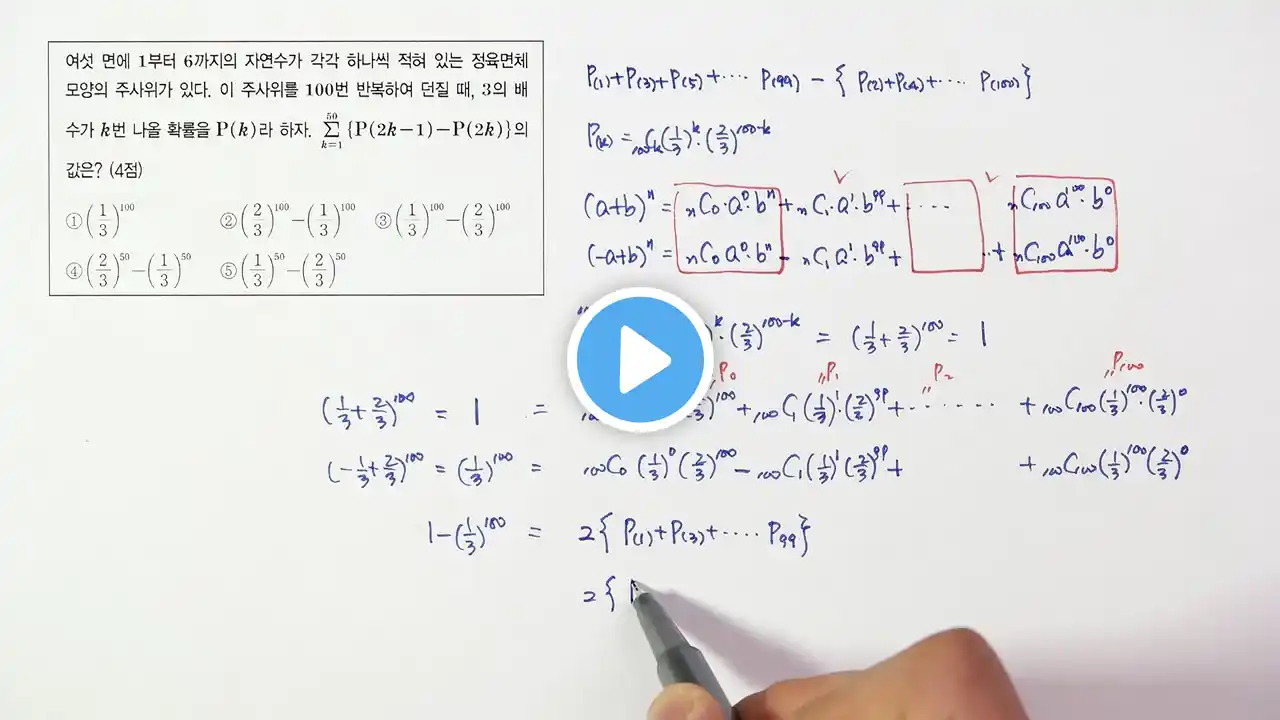 여섯 면에 1부터 6까지의 자연수가 각각 하나씩 적혀 있는 정육면체
모양의 주사위가 있다. 이 주사위를 100번 반복하여 던질 때, 3의 배
수가 k번 나올 확률을 P(k)라 하자. \sum_{k=1}^{50} {P(2k−1)−P(2k)}의
값은? (4점)
① (1/3)^100 ② (2/3)^100−(1/3)^100 ③ (1/3)^100−(2/3)^100
④ (2/3)^50−(1/3)^50 ⑤ (1/3)^50−(2/3)^50
P(1)+P(3)+P(5)+···· P(99) − { P(2)+P(4)+···· P(100)}
P(k) = 100-kC(1/3)^k·(2/3)^100-k
(a+b)^n = nC0·a^0·b^n + nC1·a^1·b^99 + ···· nC100 a^100·b^0
(-a+b)^n = nC0 a^0·b^n − nC1 a^1·b^99 + ··+ nC100 a^100·b^0
^k·(2/3)^100-k = (1/3+2/3)^100 = 1
"P0 "P1 "P2 "P100
(1/3+2/3)^100 = 1 = )^100 + 100C1(1/3)^1·(2/2)^99 + ······ + 100C100(1/3)^100·(2/3)^0
(-1/3+2/3)^100 = (1/3)^100 = 100C0 (1/3)^0 (2/3)^100 − 100C1(1/3)^1(2/3)^99 + + 100C100(1/3)^100(2/3)^0
1−(1/3)^100 = 2{ P(1)+P(3)+···· P99}
2{